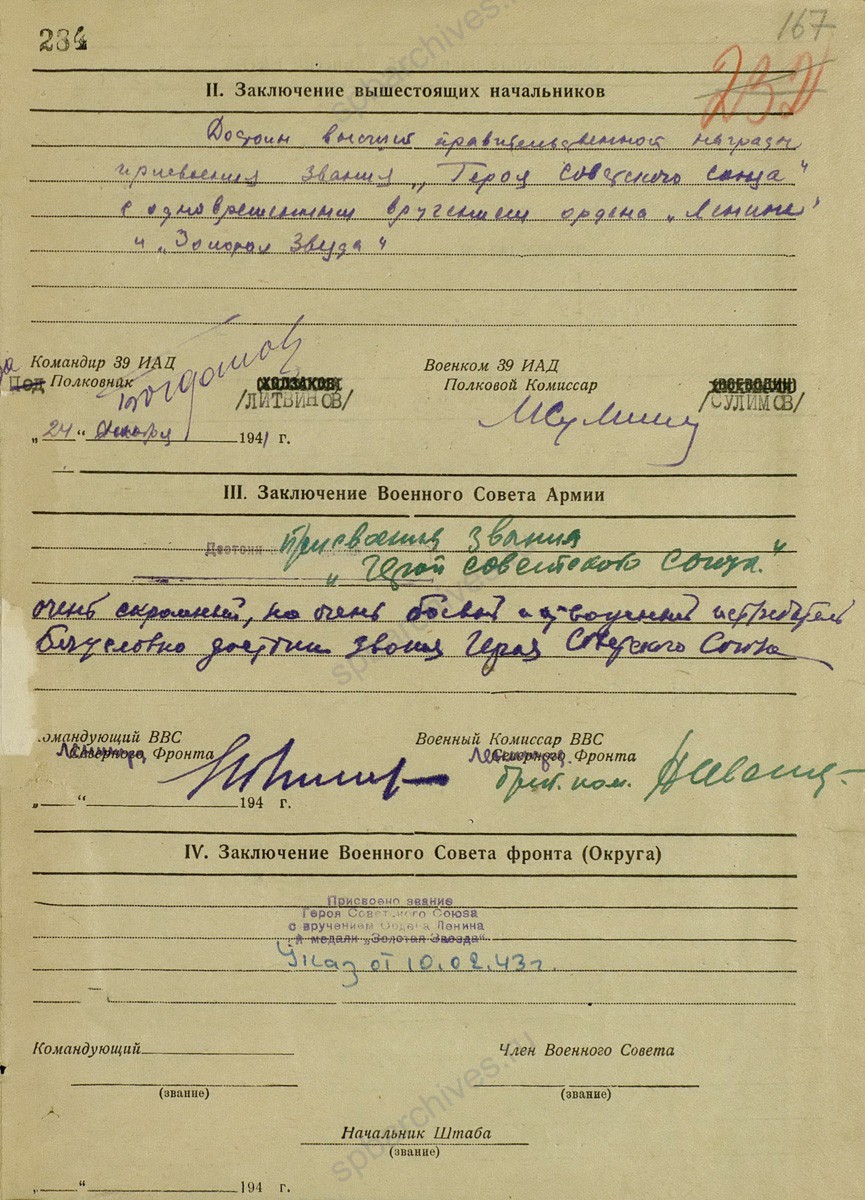 284
167
232
II. Заключение вышестоящих начальников
Достоин высшей правительственной награды
присвоения звания „Героя Советского Союза“
с одновременным вручением ордена „Ленина“
и „Золотая Звезда“
Командир 39 ИАД
Под Полковник
(ХОЛЗАКОВ)
/ЛИТВИНОВ/
„24“ декабря 1941 г.
Военком 39 ИАД
Полковой Комиссар
(ВОЕВОДИН)
/СУЛИМОВ/
III. Заключение Военного Совета Армии
Достоин присвоения звания
„Герой Советского Союза.“
очень скромный, но очень боевой истребитель
безусловно достоин звания Героя Советского Союза
омандующий ВВС
Северного Фронта
„ “ 194 г.
Военный Комиссар ВВС
Северного Фронта
Бриг. ком.
IV. Заключение Военного Совета фронта (Округа)
Присвоено звание
Героя Советского Союза
с вручением Ордена Ленина
и медали „Золотая Звезда“.
Указ от 10.02.43 г.
Командующий
(звание)
Член Военного Совета
(звание)
Начальник Штаба
(звание)
„ “ 194 г.
spbarchives.ru